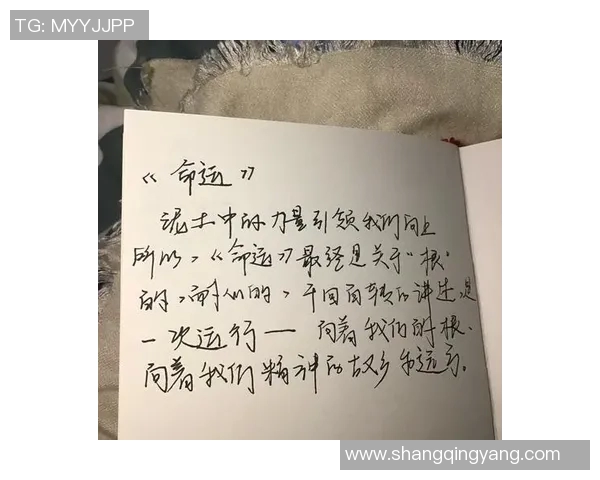 TG: MYYJJPP
《命运》
泥土中的力量引领我们向上
所以，《命运》最终是关于“根”
的，耐人的，千回百转的讲述，是
一次远行 — 向着我们的根、
向着我们精神的故乡的远方。
www.shangqingyang.com